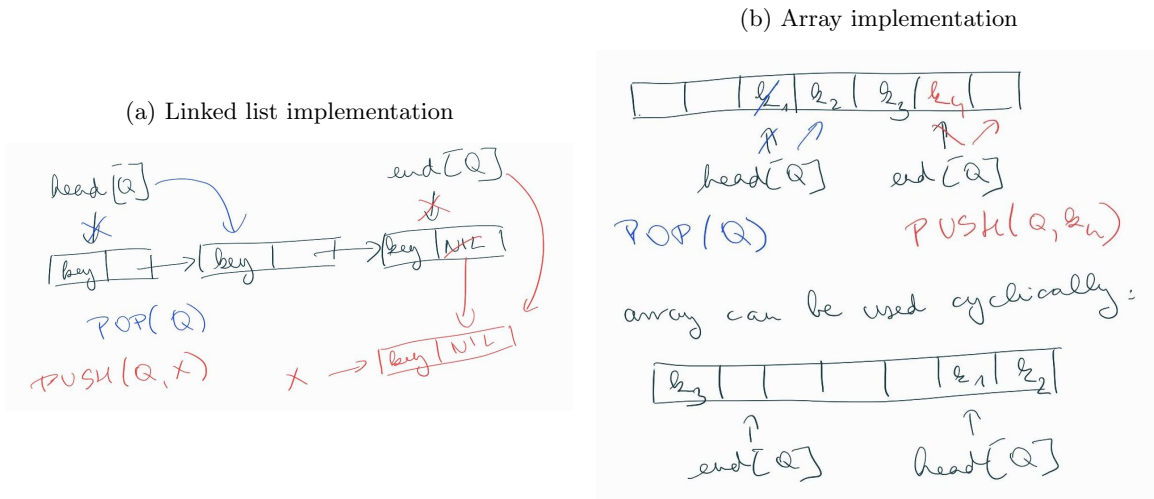 (a) Linked list implementation
head[Q]
end[Q]
key
key
key NIL
POP(Q)
PUSH(Q,X)
X
key NIL
(b) Array implementation
k1 k2 k3 k4
head[Q] end[Q]
POP(Q) PUSH(Q,k4)
array can be used cyclically:
k3 k1 k2
end[Q] head[Q]